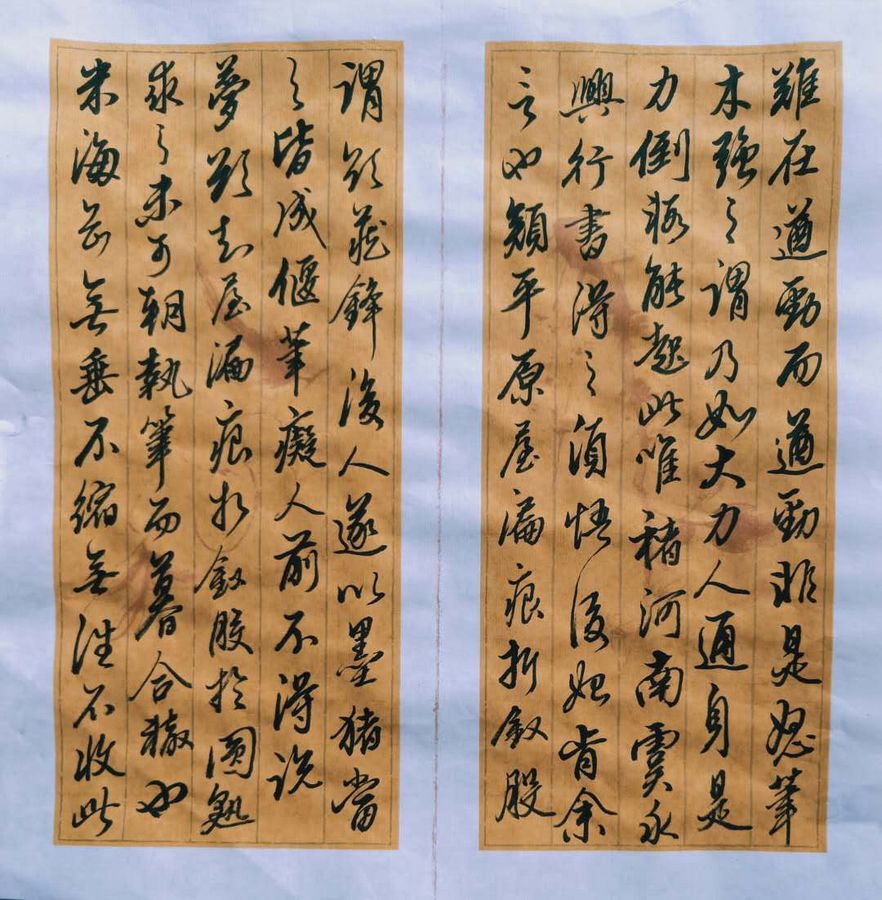 難在遒勁而遒勁非是怒筆
木強之謂乃如大力人通身是
力倒輒能起此唯褚河南虞永
興行書得之須悟後始肯余
言也顏平原屋漏痕折釵股
謂欲藏鋒後人遂以墨猪當
之皆成偃筆癡人前不得說
夢欲知屋漏痕折釵股於圓熟
求之未可朝執筆而暮合轍也
米海岳無垂不縮無往不收此